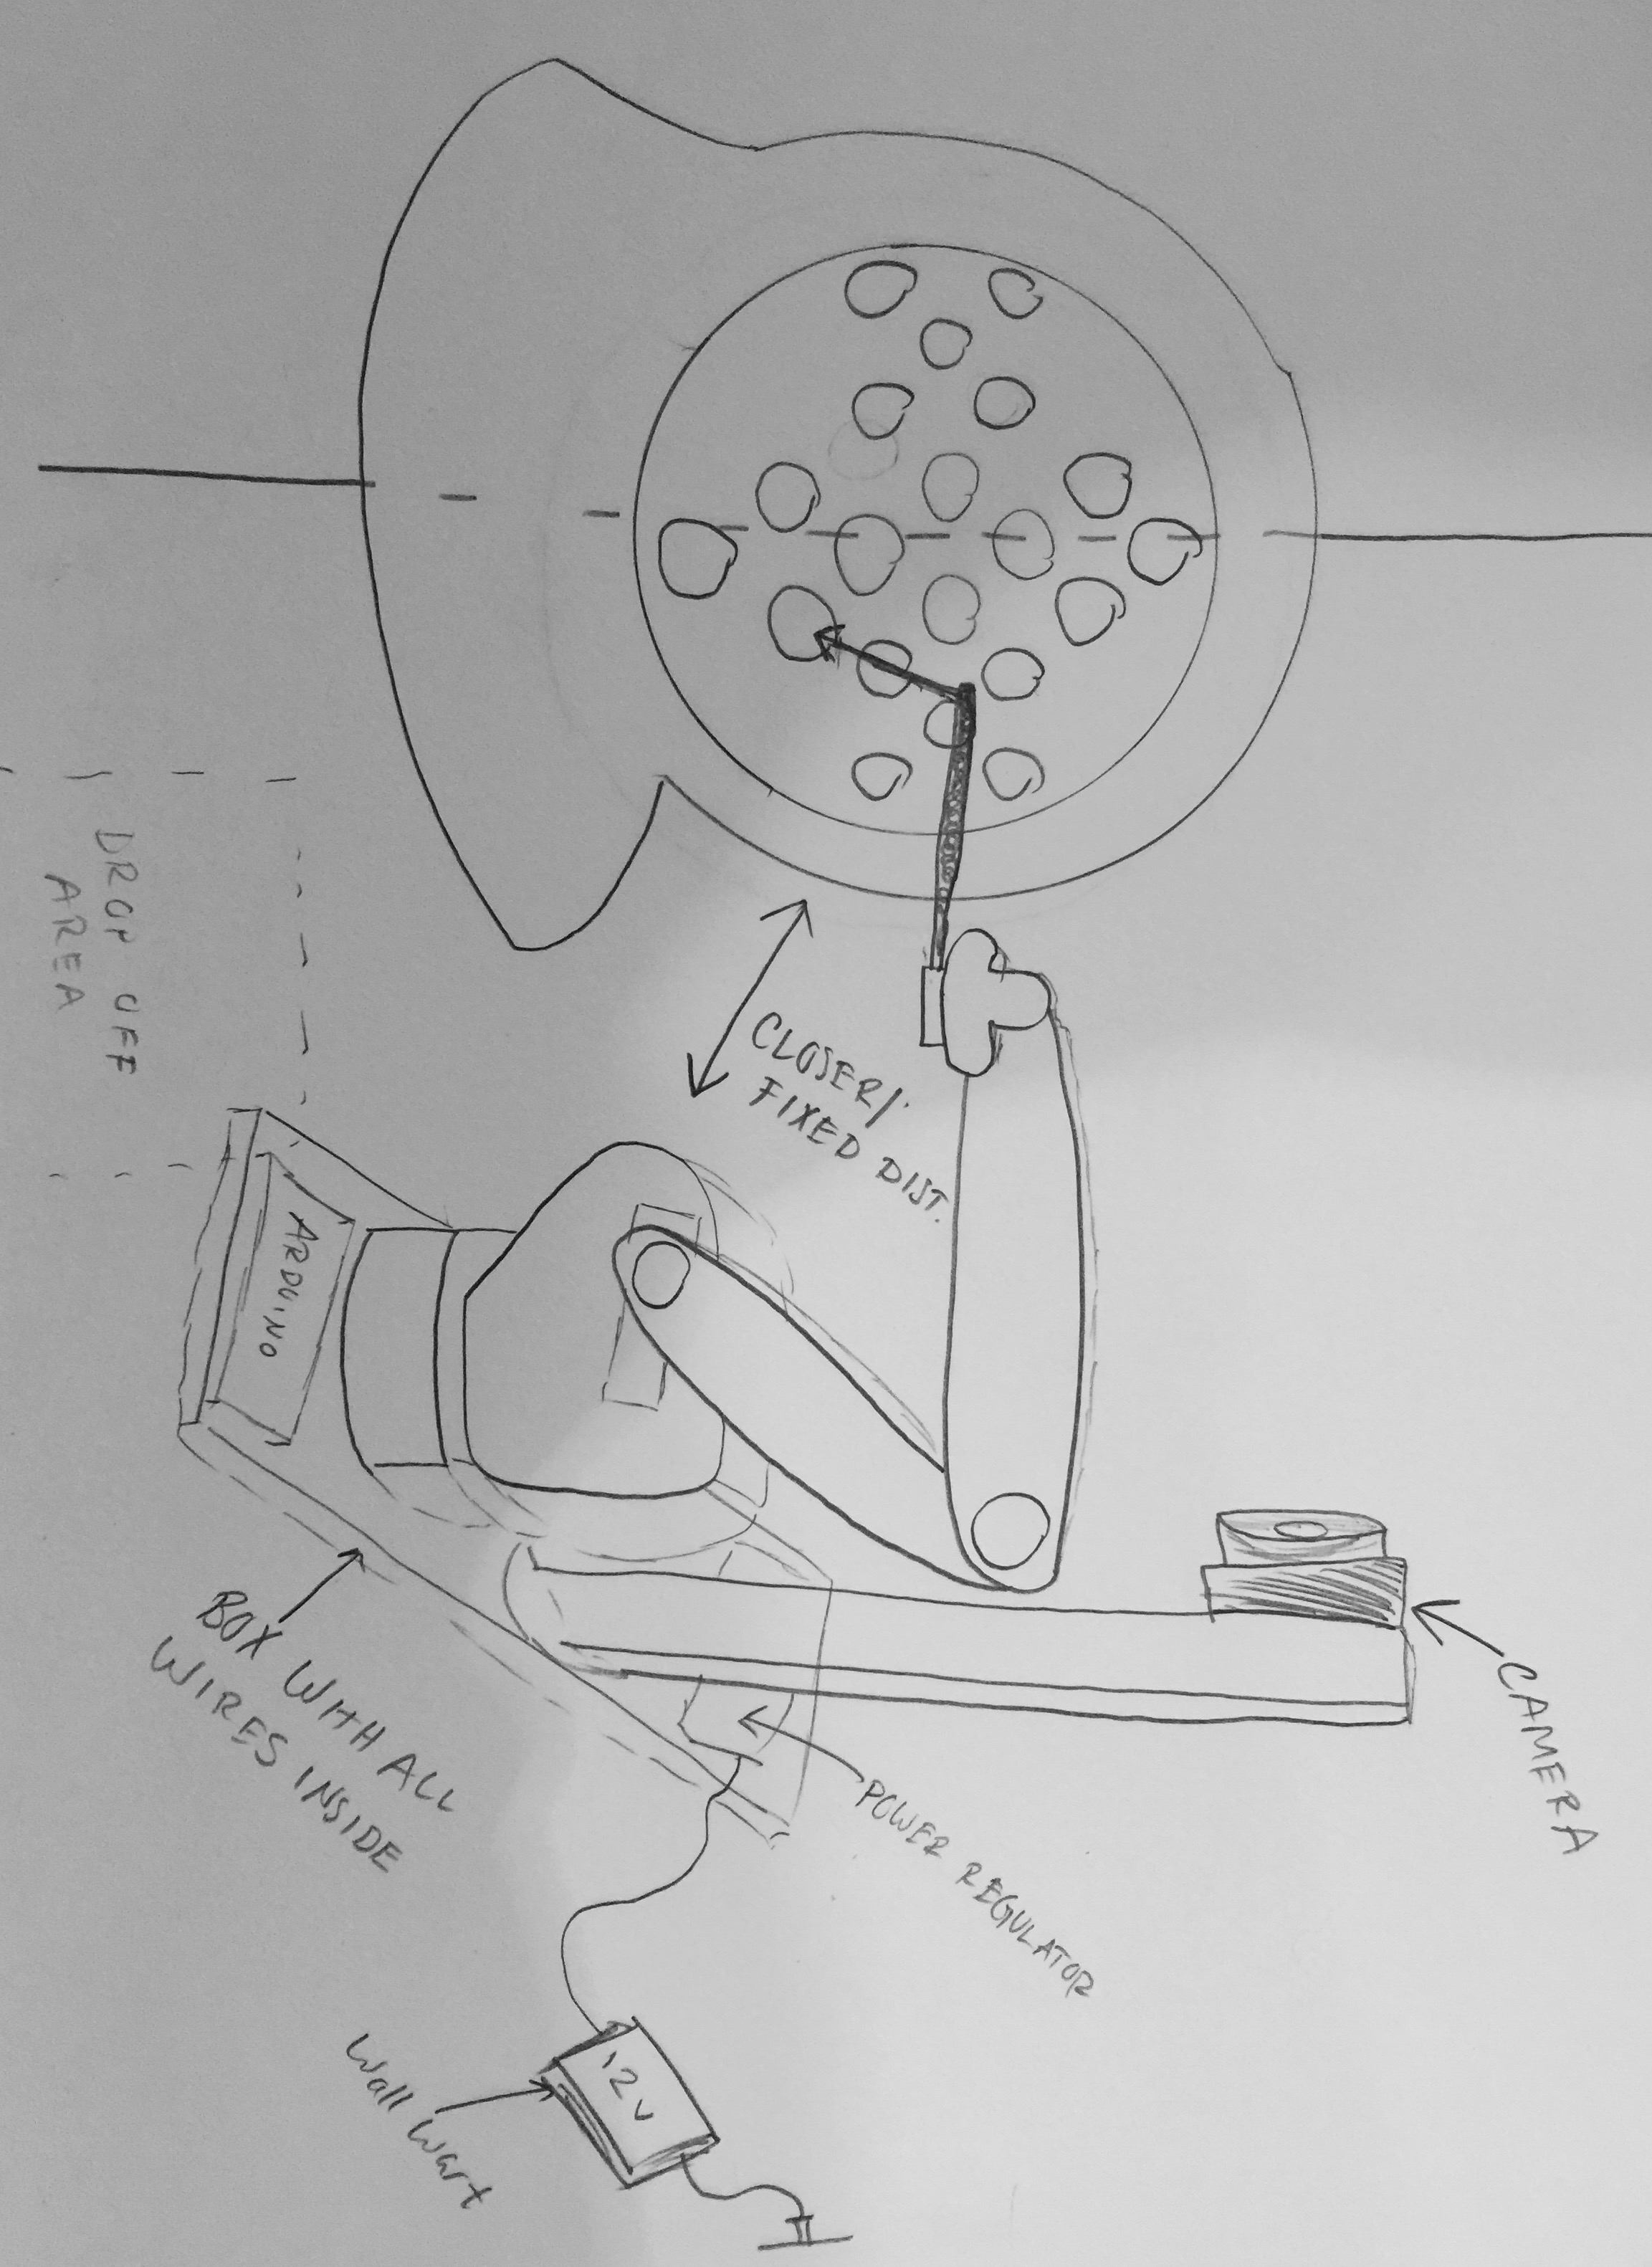 DROP OFF
AREA
CLOSER/
FIXED DIST.
ARDUINO
BOX WITH ALL
WIRES INSIDE
CAMERA
POWER REGULATOR
12V
Wall Wart